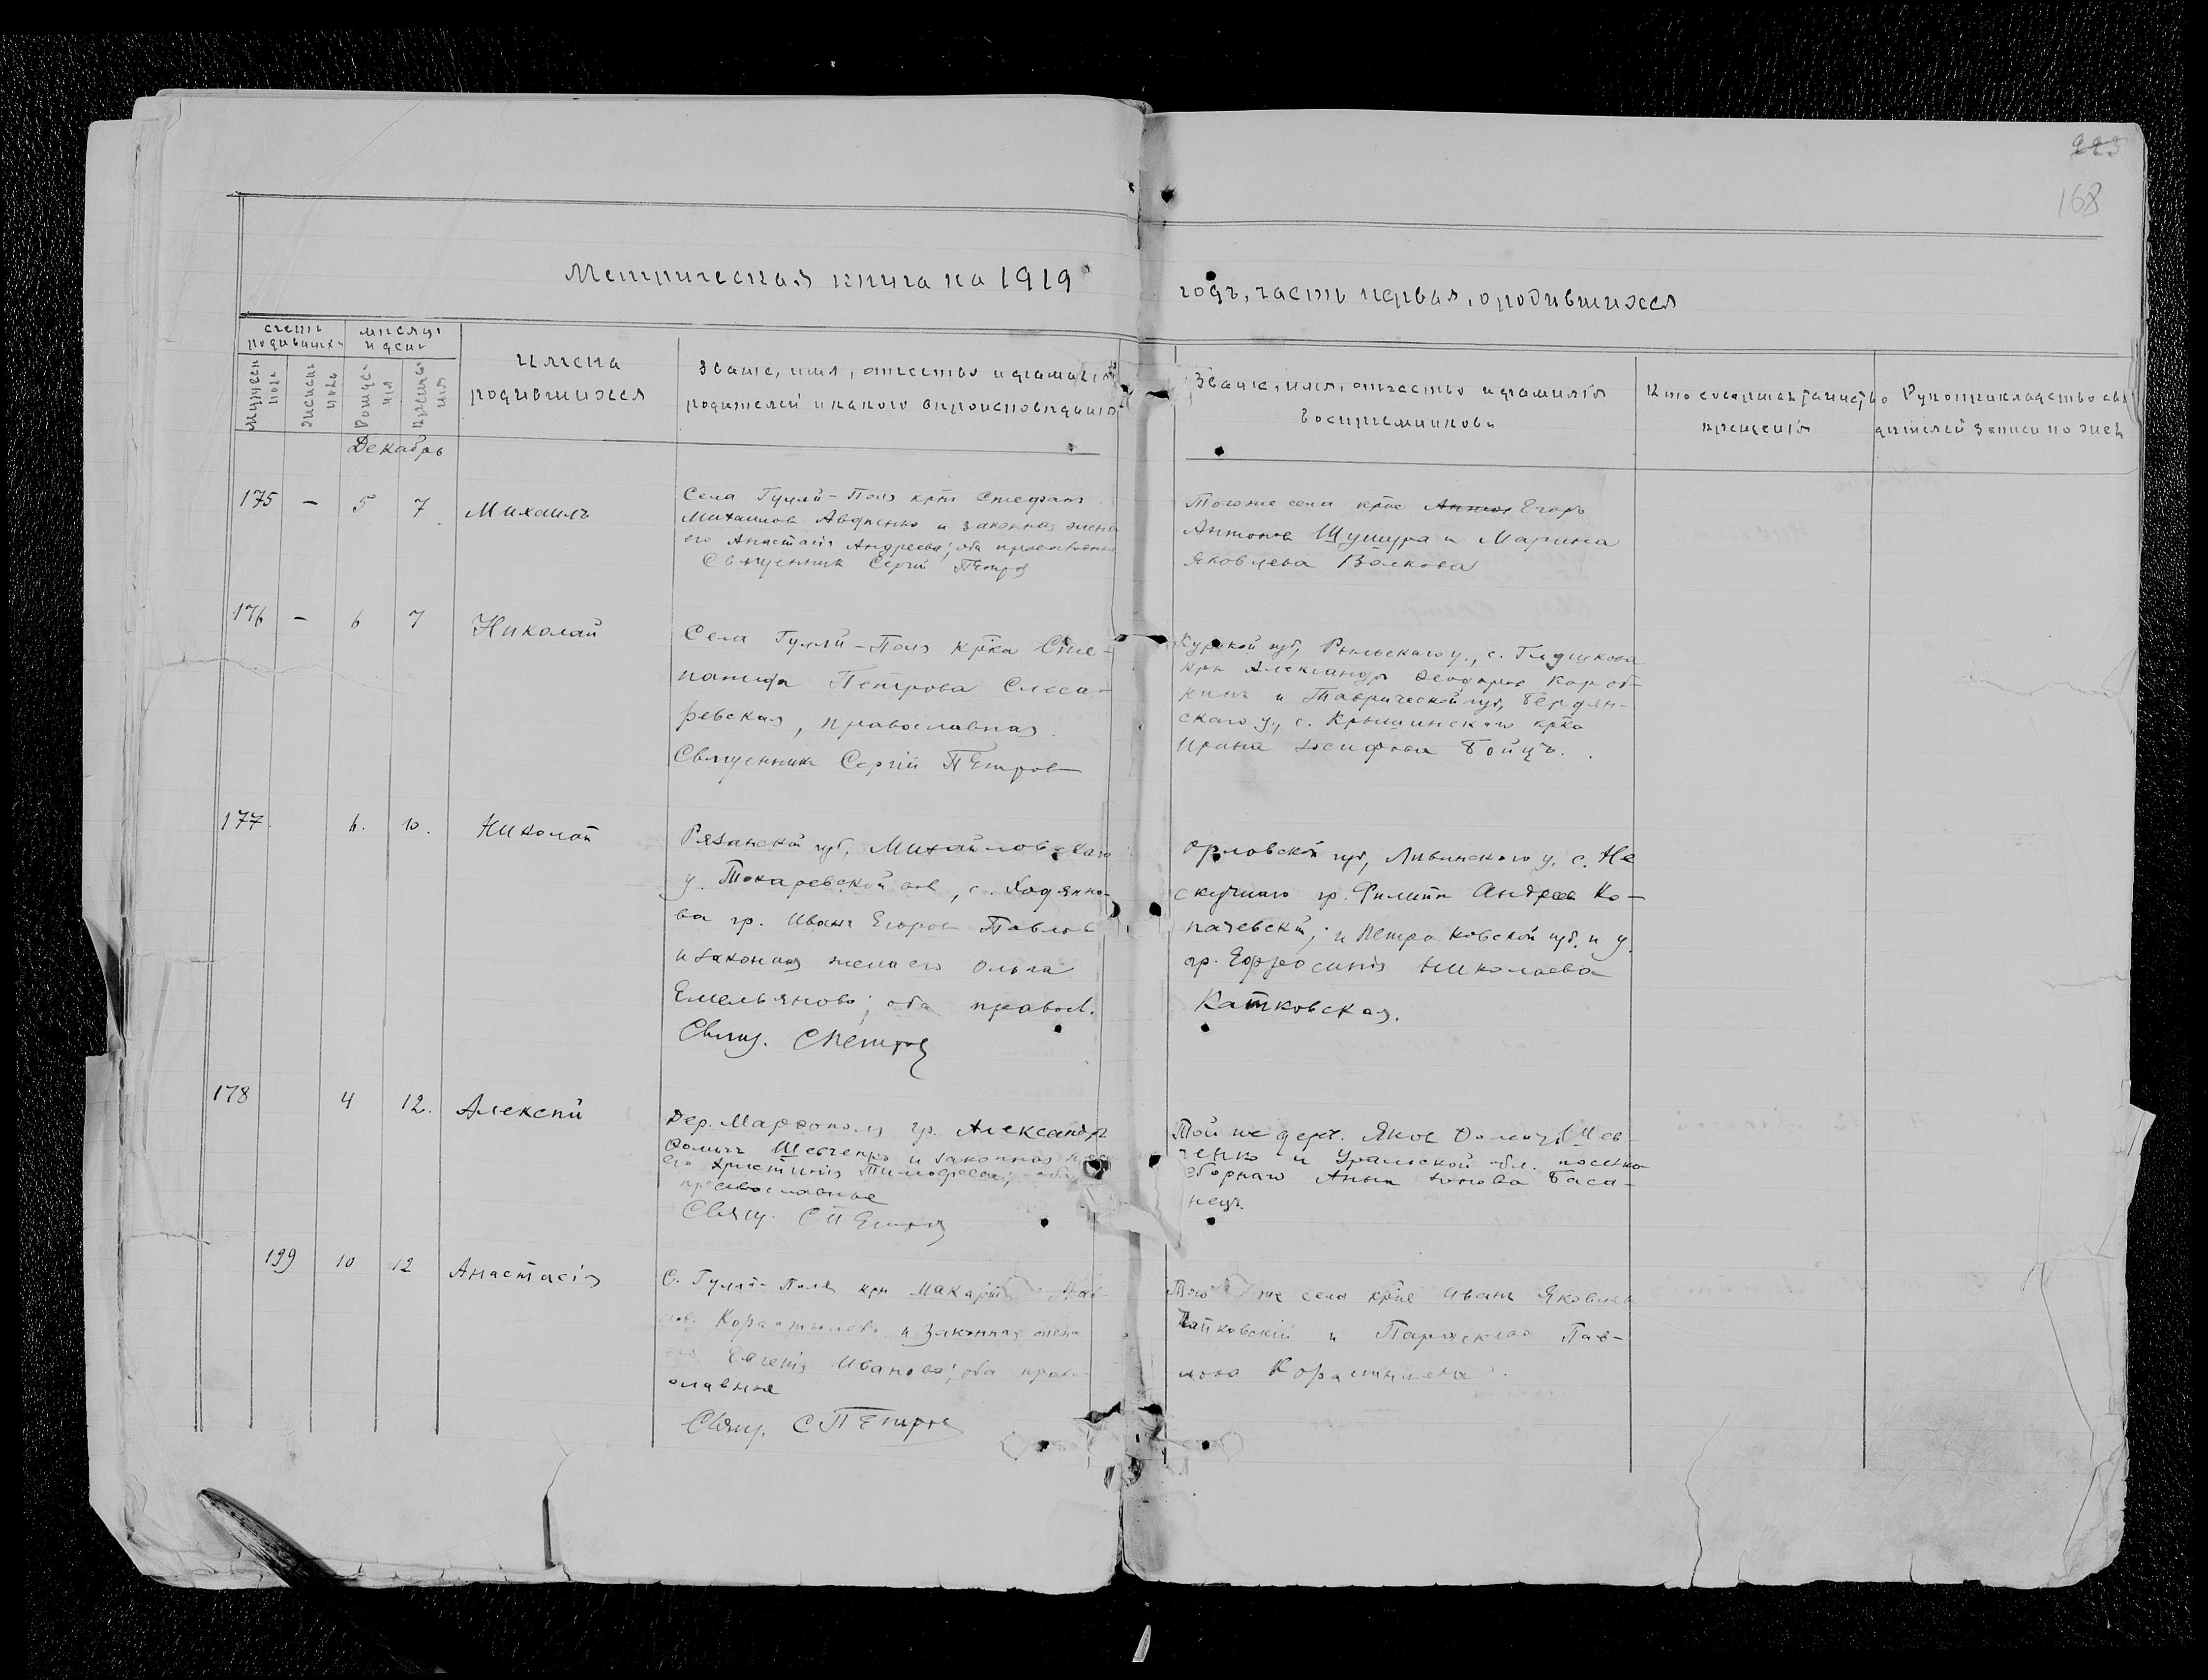 223
168
Метрическая книга на 1919
годъ, часть первая, о родившихся
счетъ родившихся
мѣсяцъ и день
имена родившихся
Званіе, имя, отчество и фамилія
родителей и какого вѣроисповѣданія
Званіе, имя, отчество и фамилія
воспріемниковъ
Кто совершилъ таинство
крещенія
Рукоприкладство сви
дѣтелей записи по жел
мужеск пола
женск полъ
Рожде-нія
крещен-ія
Декабрь
175 – 5 7 Михаилъ
Села Гуляй-Поля крн Стефанъ
Михаиловъ Авдіенко и законная жена
его Анастасія Андреева; оба православные
Священник Сергій Петров
Тогоже села крне Антон Егоръ
Антоновъ Шушура и Марина
Яковлева Волкова
176 – 6 7 Николай
Села Гуляй-Поля крка Сте-
панида Петрова Слеса-
ревская, православная.
Священник Сергій Петров
Курской губ, Рыльскаго у., с. Глушкова
крн Александръ Феодоров Короб-
кинъ и Таврической губ, Бердян-
скаго у., с. крка
Ирина Іосифова Бойцъ.
177. 6. 10. Николай
Рязанской губ, Михайловскаго
у. Токаревской вол, с.
ва гр. Иванъ Егоров Павлов
и законная жена его Ольга
Емельянова; оба правосл.
Свящ. С Петров
Орловской губ, Ливинскаго у. с. Не
скучнаго гр. Филипп Андреев Ко-
пачевскій; и Петроковской губ. и у.
гр. Ефросинія Николаева
Катковская.
178 4 12. Алексѣй
Дер. Марфополя гр. Александръ
Фомичъ Шевченко и законная жена
его Христинія Тимофеева; оба
православные
Свящ. С Петров
Той же дерев. Яков Фомичъ Шев-
ченко и Уральской обл. поселка
Анна Баса-
нецъ.
199 10 12 Анастасія
С. Гуляй-Поля крн Макарій
и законная жена
его Евгенія Иванова; оба право-
славные
Свящ. С Петров
Того же села крне Иванъ Яковлев
и Параскева Пав-
лова